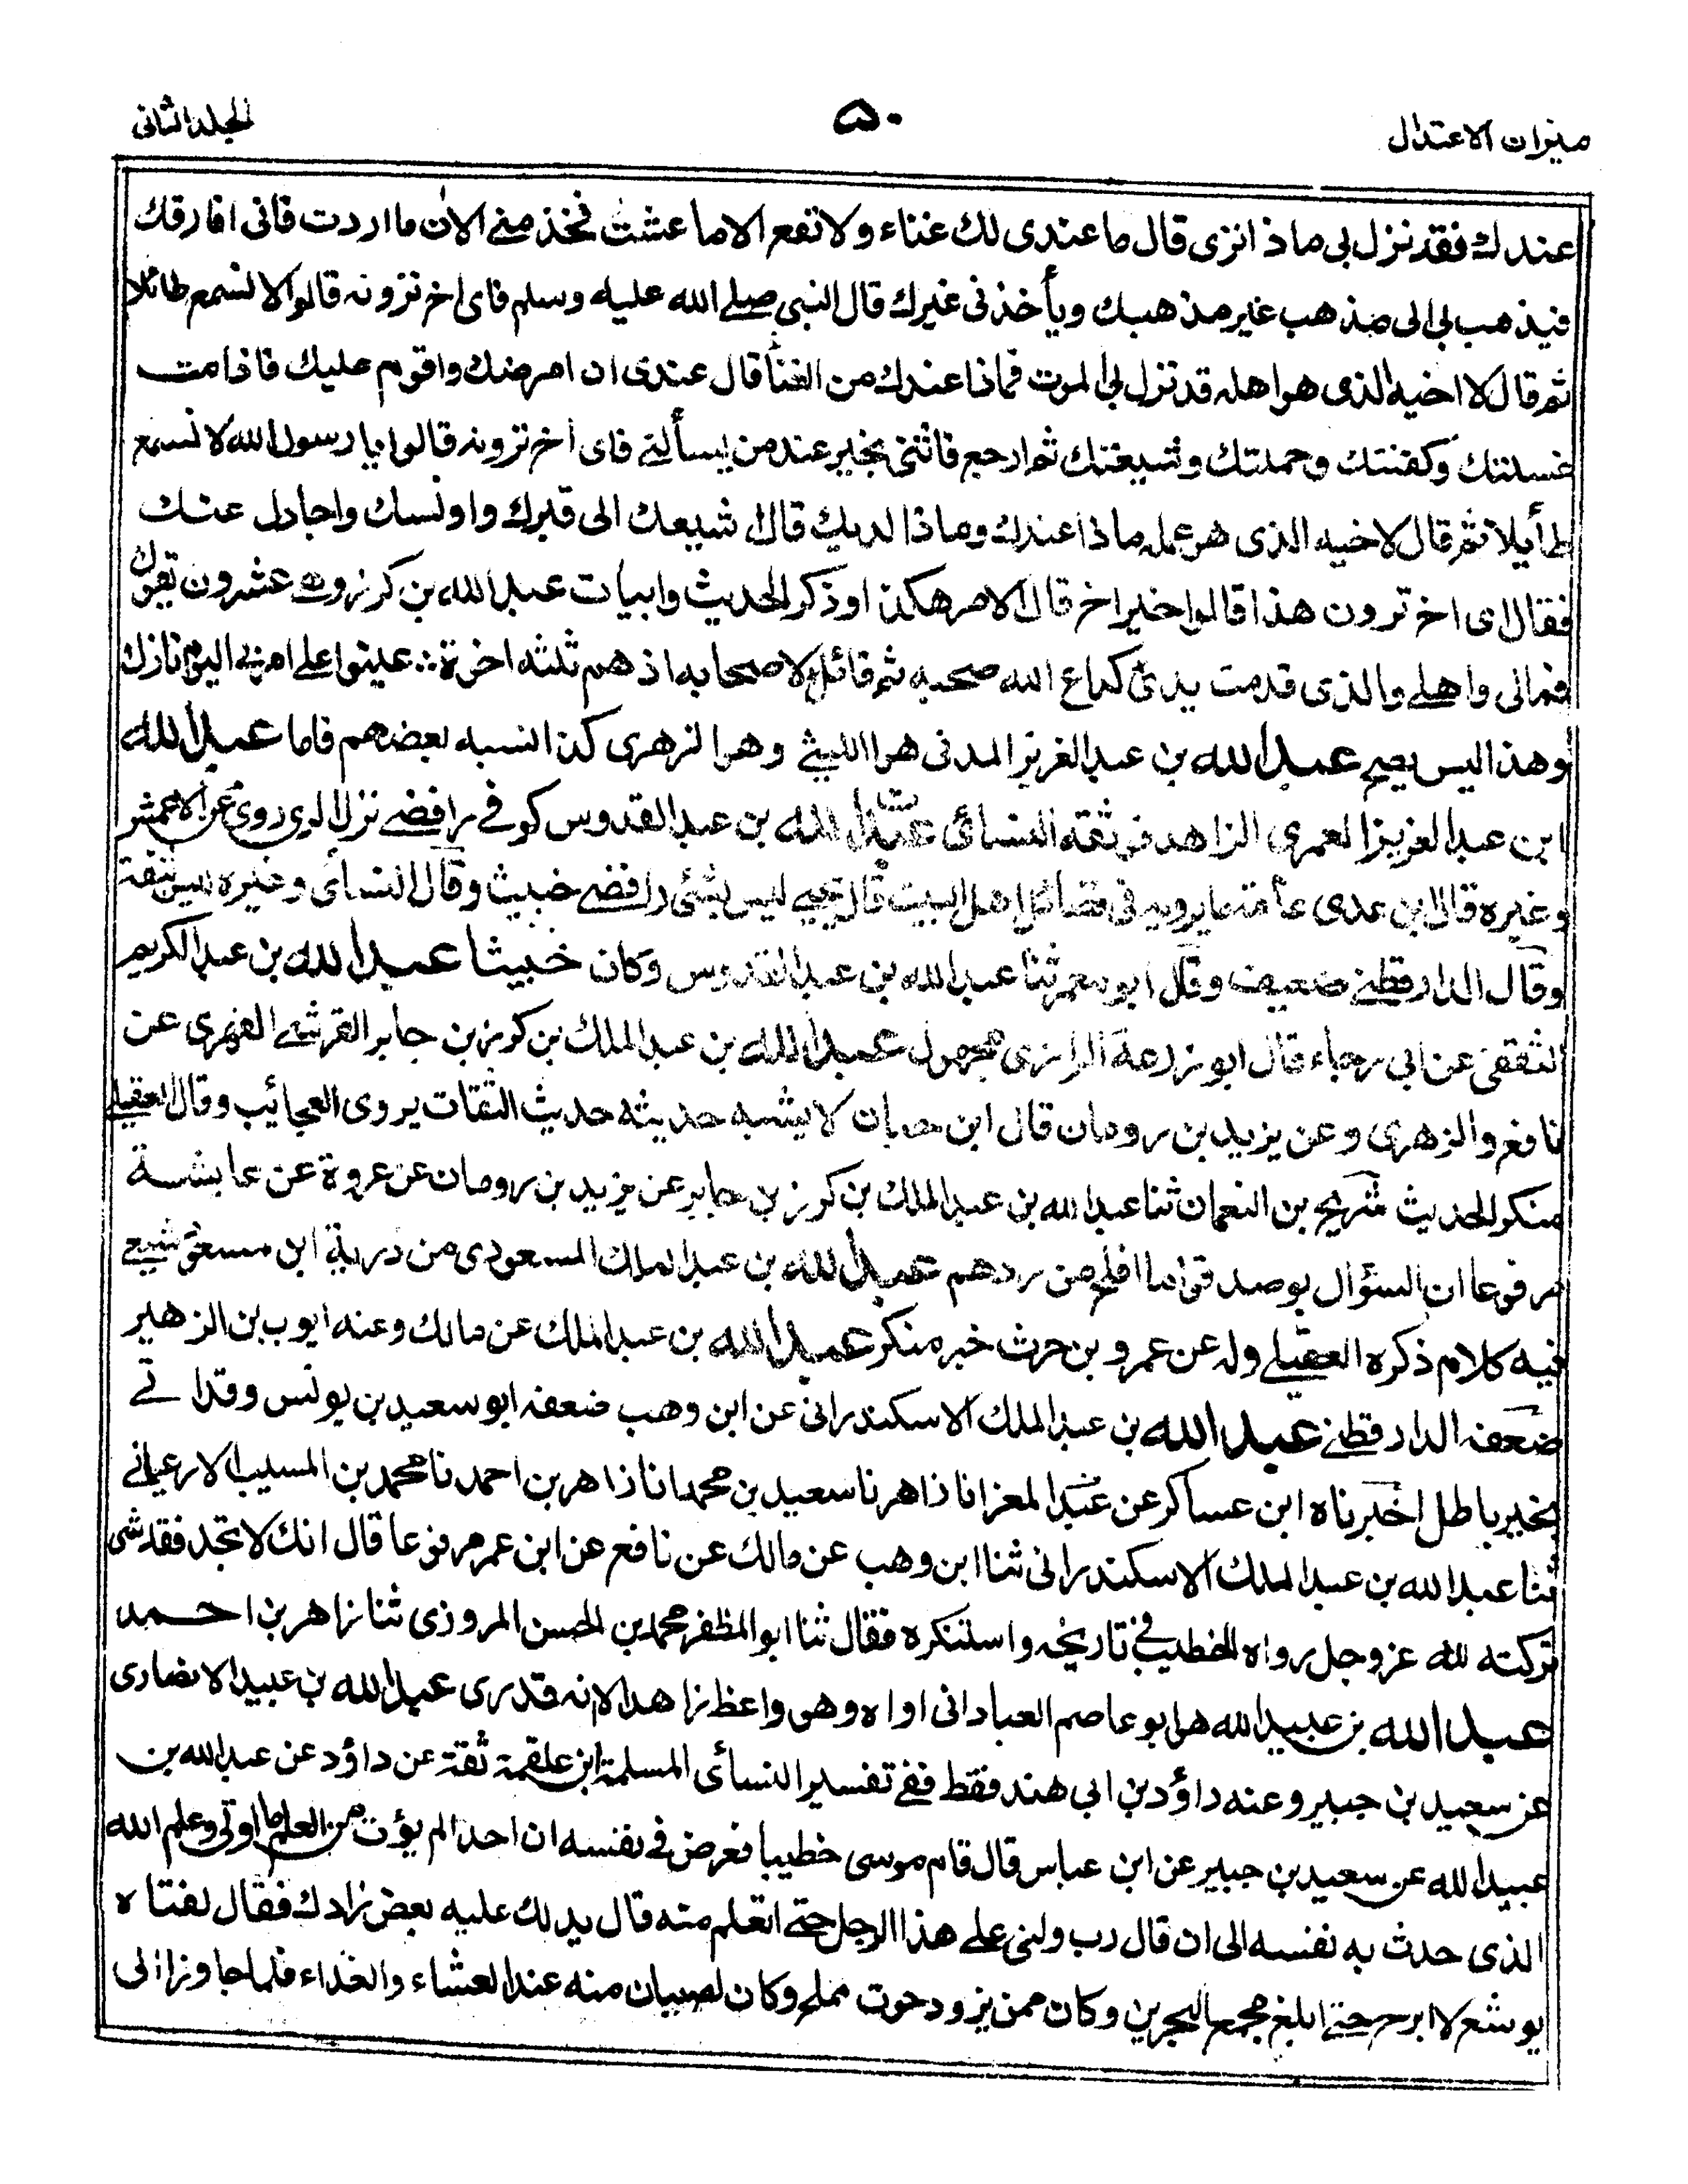 ميزان الاعتدال
۵۰
الجلد الثانى
عندك فقد نزل بى ماذا نزى قال ما عندى لك غناء ولا نفع الا ما عشت فخذ منى الان ما اردت فانى افارقك
فيذهب بى الى مذهب غير مذهبك ويأخذنى غيرك قال النبى صلى الله عليه وسلم فاى اخ ترونه قالوا لا نسمع طائلا
ثم قال لاخيه الذى هو اهله قد نزل بى الموت فماذا عندك من الغنأ قال عندى ان امرضك واقوم عليك فاذا مت
غسلتك وكفنتك وحملتك وشيعتك ثم ارجع فاثنى بخير عند من يسألنى فاى اخ ترونه قالوا يا رسول الله لا نسمع
طأيلا ثم قال لاخيه الذى هو عمله ماذا عندك وماذا لديك قال اشيعك الى قبرك واونسك واجادل عنك
فقال اى اخ ترون هذا قالوا خير اخ قال الامر هكذا وذكر الحديث وابيات عبد الله بن كرز وهى عشرون تقول
فمالى واهلى والذى قدمت يدى كداع الله صحبه ثم قائل لاصحابه اذ هم ثلثه اخرة ∴ عينوا على امر بى اليوم نازل
وهذا ليس بصحيح عبد الله بن عبد العزيز المدنى هو الليثى وهو الزهرى كذا نسبه بعضهم فاما عبد الله
ابن عبد العزيز العمرى الزاهد فوثقه النسائى عبد الله بن عبد القدوس كوفى رافضى نزل الرى روى عن الاعمش
وغيره قال ابن عدى عامة ما يرويه فى فضائل اهل البيت قال يحيى ليس بشئ رافضى خبيث وقال النسائى وغيره ليس بثقة
وقال الدارقطنى ضعيف وقال ابو معمر ثنا عبد الله بن عبد القدوس وكان خبيثا عبد الله بن عبد الكريم
الثقفى عن ابى رجاء قال ابو زرعة الرازى مجهول عبد الله بن عبد الملك بن كرز بن جابر القرشى الفهرى عن
نافع والزهرى وعن يزيد بن رومان قال ابن حبان لا يشبه حديثه حديث الثقات يروى العجائب وقال العقيلى
منكر الحديث شريح بن النعمان ثنا عبد الله بن عبد الملك بن كرز بن جابر عن يزيد بن رومان عن عروة عن عايشة
مرفوعا ان السؤال لو صدقوا ما افلح من ردهم عبد الله بن عبد الملك المسعودى من ذرية ابن مسعود شيعى
فيه كلام ذكره العقيلى وله عن عمرو بن حرث خبر منكر عبد الله بن عبد الملك عن مالك وعنه ايوب بن الزهير
ضعفه الدارقطنى عبد الله بن عبد الملك الاسكندرانى عن ابن وهب ضعفه ابو سعيد بن يونس وقد اتى
بخبر باطل اخبرناه ابن عساكر عن عبد المعز انا زاهر نا سعيد بن محمد انا زاهر بن احمد نا محمد بن المسيب الارغيانى
ثنا عبد الله بن عبد الملك الاسكندرانى ثنا ابن وهب عن مالك عن نافع عن ابن عمر مرفوعا قال انك لا تجد فقد شى
تركته لله عز وجل رواه الخطيب فى تاريخه واستنكره فقال ثنا ابو المظفر محمد بن الحسن المروزى ثنا زاهر بن احمد
عبد الله بن عبيد الله هو ابو عاصم العبادانى اواه وهو واعظ زاهد الا انه قدرى عبد الله بن عبيد الانصارى
عن سعيد بن جبير وعنه داؤد بن ابى هند فقط ففى تفسير النسائى المسلمة ابن علقمة ثقة عن داؤد عن عبد الله بن
عبيد الله عن سعيد بن جبير عن ابن عباس قال قام موسى خطيبا فعرض فى نفسه ان احدا لم يؤت من العلم ما اوتى وعلم الله
الذى حدث به نفسه الى ان قال رب ولنى على هذا الرجل حتى اتعلم منه قال يدلك عليه بعض زادك فقال لفتاه
يوشع لا ابرح حتى ابلغ مجمع البحرين وكان ممن يزود حوت مملح وكان لصيبان منه عند العشاء والغداء فلما جاوزا الى